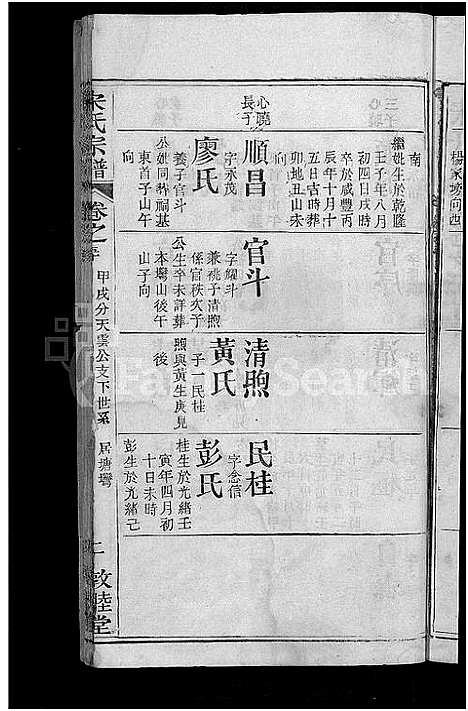 心曉
長子
南
繼姓生於乾隆
壬子年八月
初四日戌時
卒於咸豐丙
辰年十月十
五日古時葬
卯地丑山未
向
順昌
字永茂
廖氏
養子官斗
公姚同葬祠基
東首子山午
向
官斗
字耀斗
兼祧子清煦
係官秩次子
公生卒未詳葬
本塆山後午
山子向
清煦
黃氏
子一民桂
煦與黃生庚見
後
民桂
字念信
彭氏
桂生於光緒壬
寅年四月初
十日未時
彭生於光緒己
宋氏宗譜
卷之
甲戌分天雲公支下世系
居塘灣
二
敦睦堂
三子
楊家坳向西